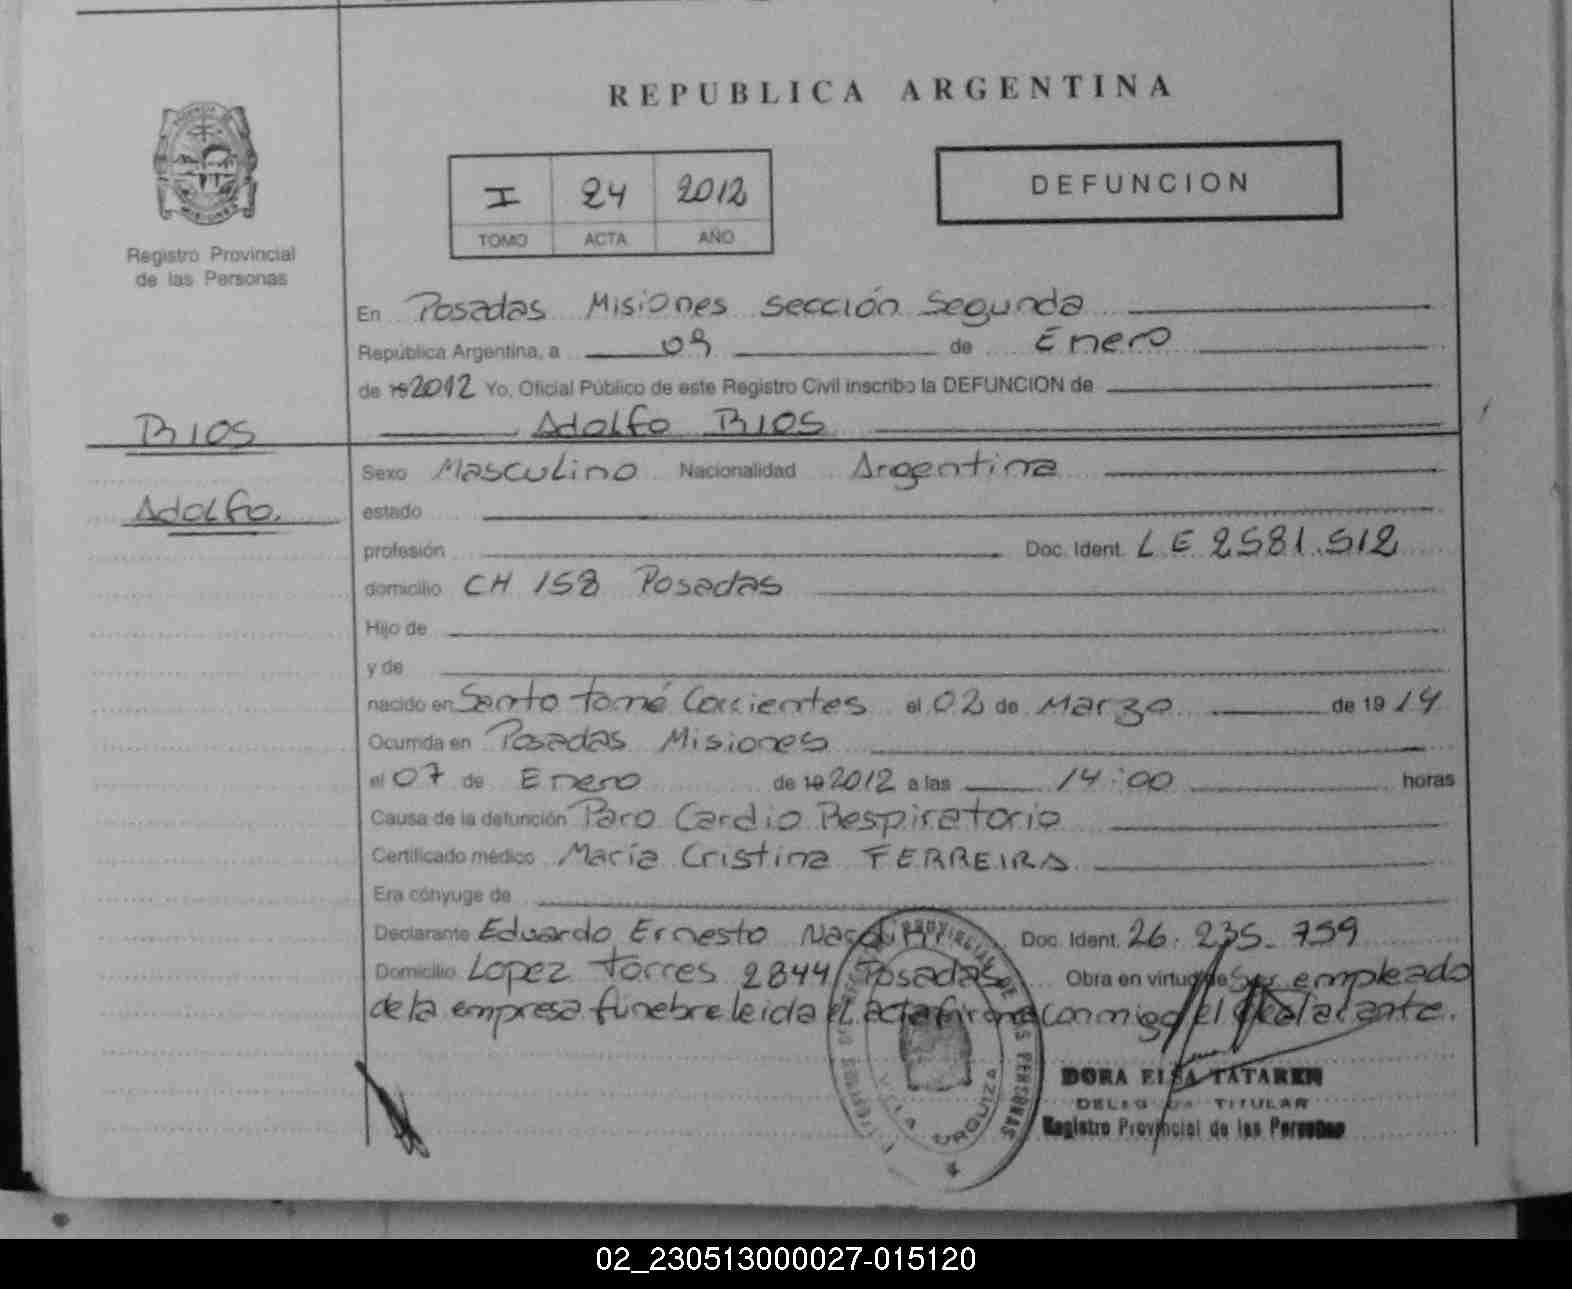 REPUBLICA ARGENTINA
I 24 2012
TOMO ACTA AÑO
DEFUNCION
Registro Provincial
de las Personas
En Posadas Misiones sección Segunda
República Argentina, a 09 de Enero
de 19 2012 Yo, Oficial Público de este Registro Civil inscribo la DEFUNCION de
RIOS
Adolfo RIOS
Adolfo.
Sexo Masculino Nacionalidad Argentina
estado
profesión Doc. Ident. L E 2581.512
domicilio CH 158 Posadas
Hijo de
y de
nacido en Santo tomé Corrientes el 02 de Marzo de 19 14
Ocurrida en Posadas Misiones
el 07 de Enero de 19 2012 a las 14:00 horas
Causa de la defunción Paro Cardio Respiratorio
Certificado médico María Cristina FERREIRA
Era cónyuge de
Declarante Eduardo Ernesto Doc. Ident. 26.235.759
Domicilio Lopez torres 2844 Posadas Obra en virtud de Ser empleado
de la empresa fúnebre leida el acta firma conmigo el declarante.
REGISTRO PROVINCIAL DE LAS PERSONAS
VILLA URQUIZA
DORA ELSA TATAREN
DELEGADA TITULAR
Registro Provincial de las Personas
02_230513000027-015120